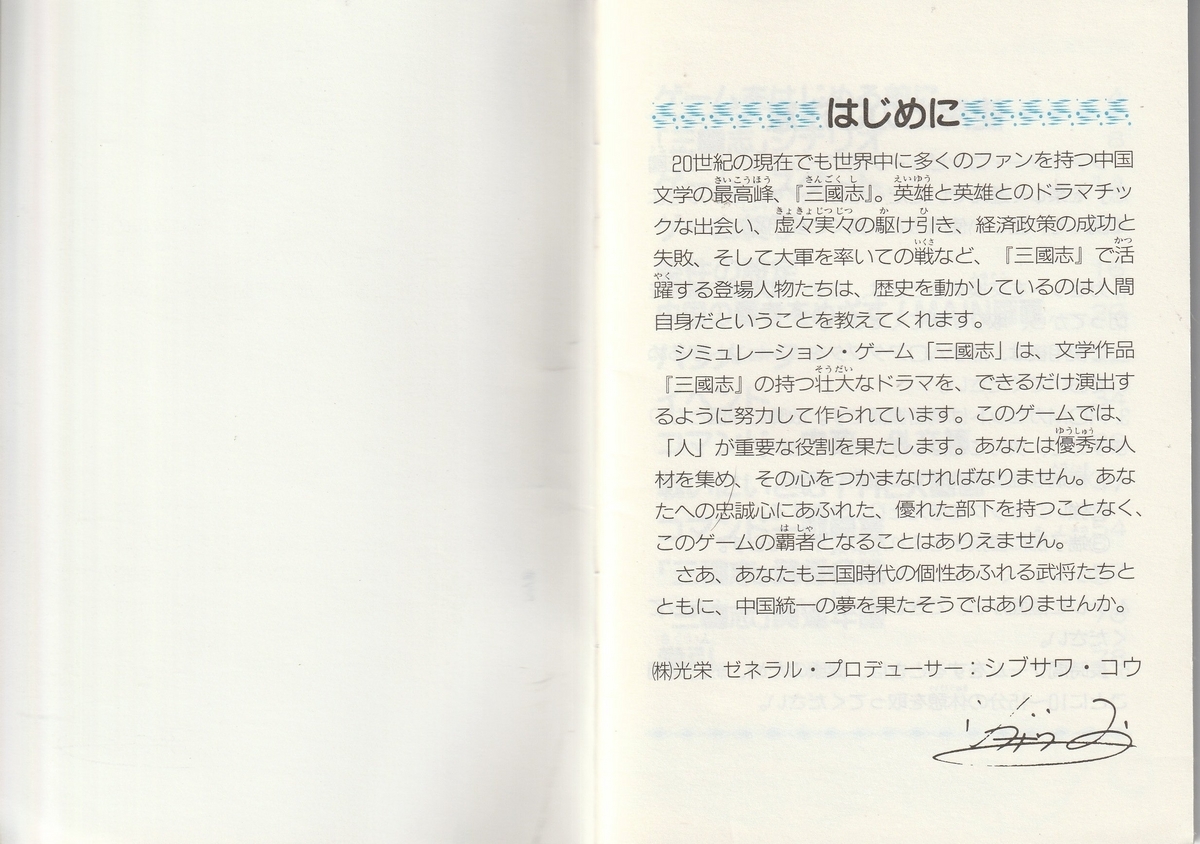 はじめに
20世紀の現在でも世界中に多くのファンを持つ中国
文学の最高峰、『三國志』。英雄と英雄とのドラマチッ
クな出会い、虚々実々の駆け引き、経済政策の成功と
失敗、そして大軍を率いての戦など、『三國志』で活
躍する登場人物たちは、歴史を動かしているのは人間
自身だということを教えてくれます。
シミュレーション・ゲーム「三國志」は、文学作品
『三國志』の持つ壮大なドラマを、できるだけ演出す
るように努力して作られています。このゲームでは、
「人」が重要な役割を果たします。あなたは優秀な人
材を集め、その心をつかまなければなりません。あな
たへの忠誠心にあふれた、優れた部下を持つことなく、
このゲームの覇者となることはありえません。
さあ、あなたも三国時代の個性あふれる武将たちと
ともに、中国統一の夢を果たそうではありませんか。
㈱光栄 ゼネラル・プロデューサー：シブサワ・コウ